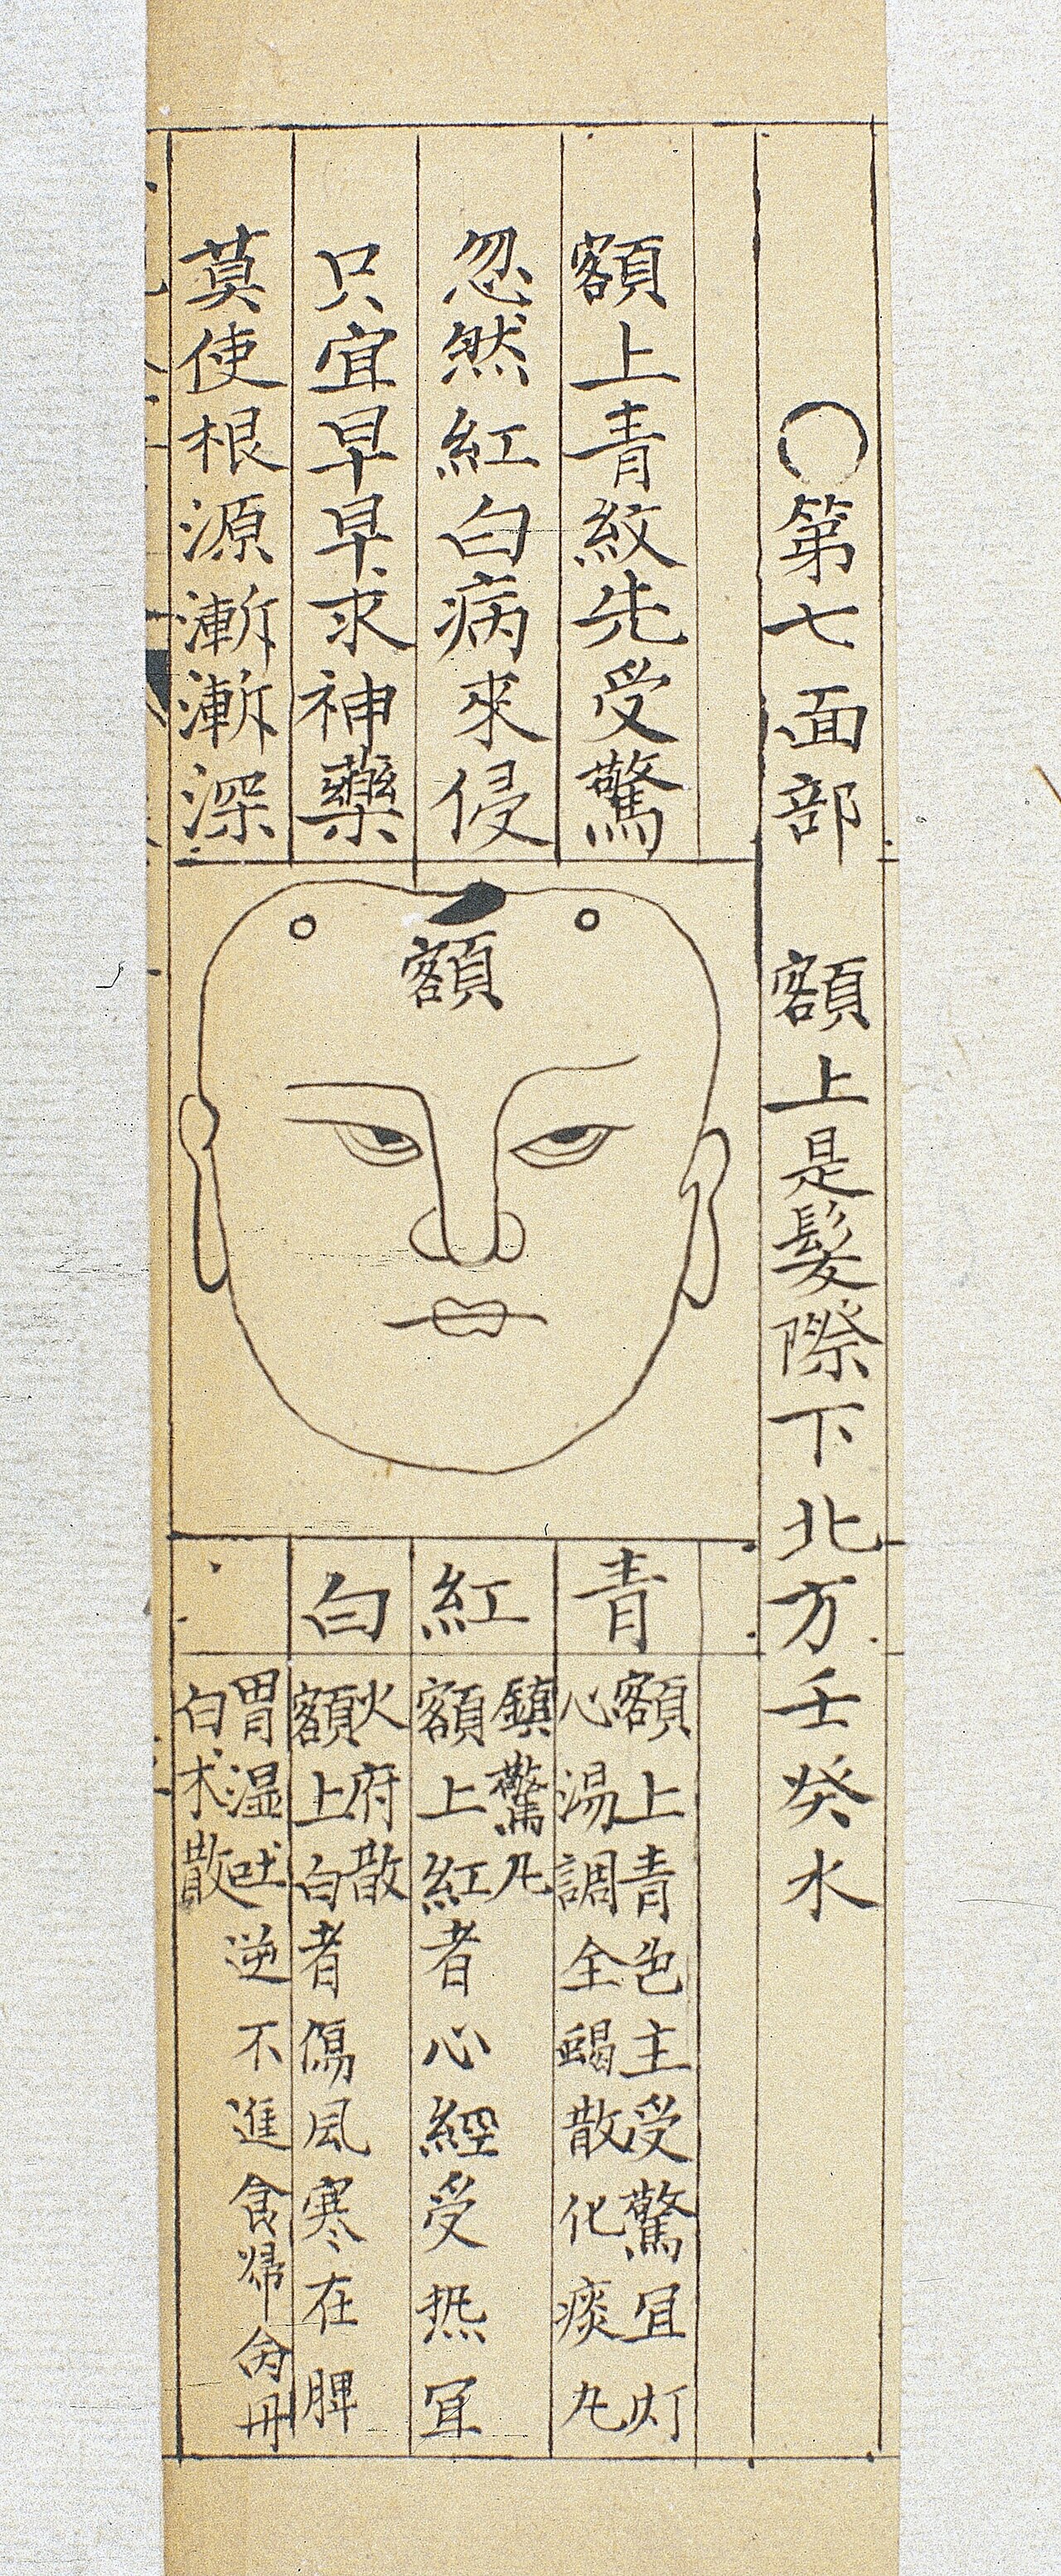 ○第七面部 額上是髮際下北方壬癸水
額上青紋先受驚
忽然紅白病來侵
只宜早早求神藥
莫使根源漸漸深
額
青
紅
白
額上青色主受驚宜灯
心湯調全蝎散化痰丸
鎮驚丸
額上紅者心經受热宜
火府散
額上白者傷風寒在脾
胃湿吐逆不進食
白术散